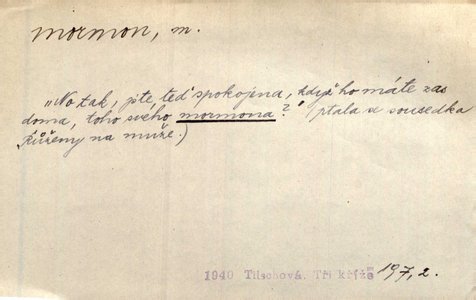 mormon, m.
„No tak, jste teď spokojena, když ho máte zas
doma, toho svého mormona?" (ptala se sousedka
Růženy na muže.)
1940 Tilschová, Tři kříže 197,2.